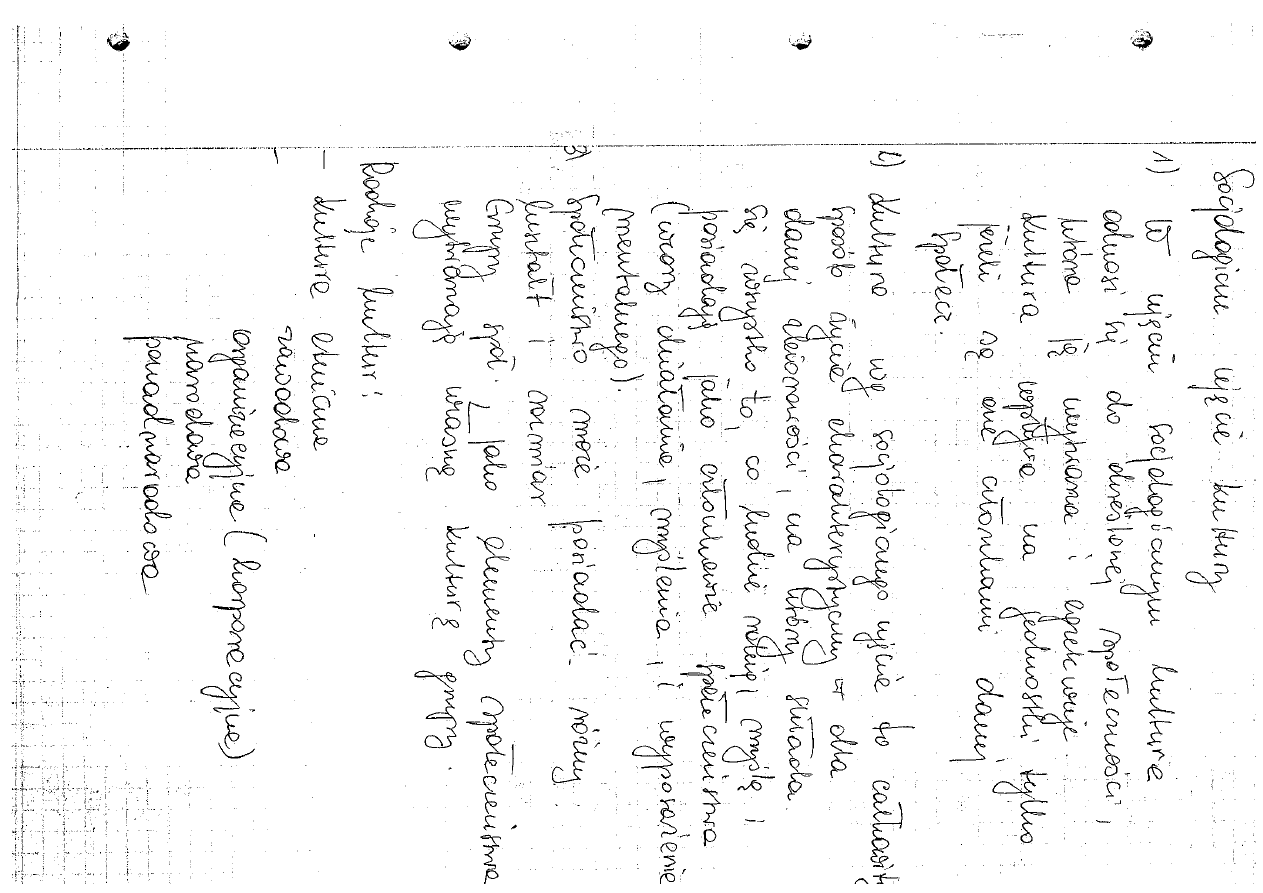 Socjologiczne ujęcie kultury
1) W ujęciu socjologicznym kultura
odnosi się do określonej społeczności,
która ją wytwarza i egzekwuje.
Kultura wpływa na jednostki tylko
jeżeli są one członkami danej
społecz.
2) Kultura wg socjologicznego ujęcia to całkowity
sposób życia charakterystyczny dla
danej zbiorowości, na który składa
się wszystko to, co ludzie robią, myślą i
posiadają jako członkowie społeczeństwa
(wzory działania, myślenia, i wyposażenie
mentalnego).
3) Społeczeństwo może posiadać różny
kształt i rozmiar
Grupy społ. jako elementy społeczeństwa
wytwarzają własną kulturę grupy.
Rodzaje kultur:
- kultura etniczna
- zawodowa
organizacyjna (korporacyjna)
narodowa
ponadnarodowa